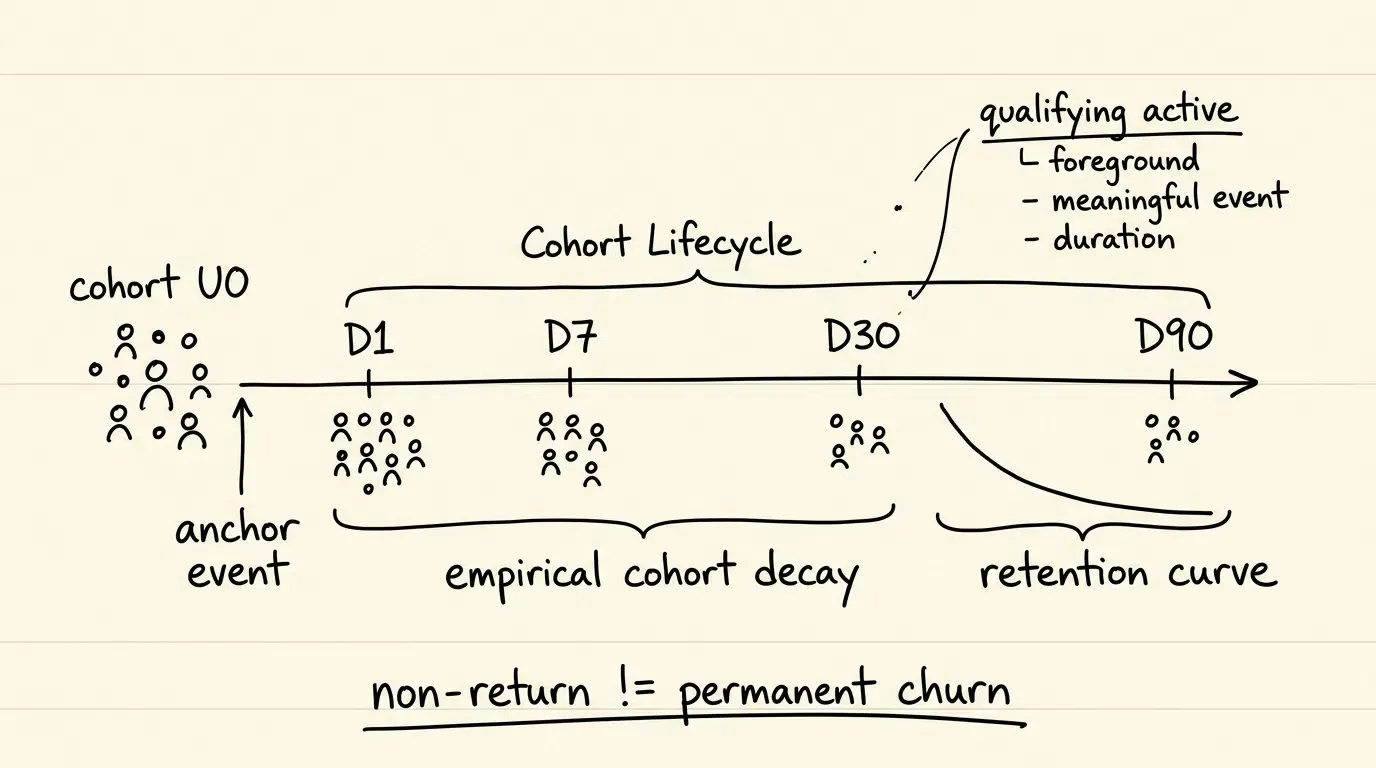 qualifying active
foreground
- meaningful event
- duration
Cohort Lifecycle
cohort UO
D1 D7 D30 D90
anchor
event
empirical cohort decay
retention curve
non-return != permanent churn